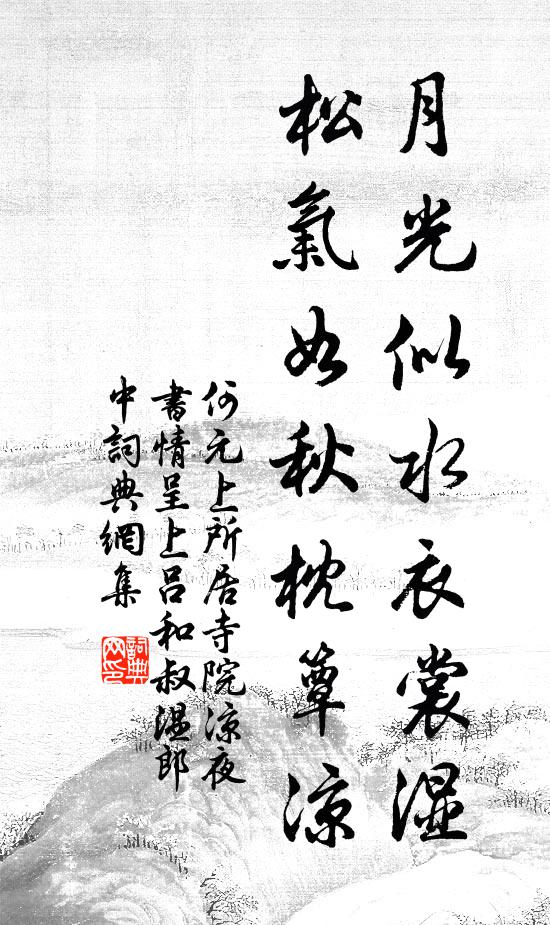 月光似水衣裳湿
松氣如秋枕簟涼
何元上所居寺院涼夜
書情呈上吕和叔温郎
中詞典網集
詞典
网印